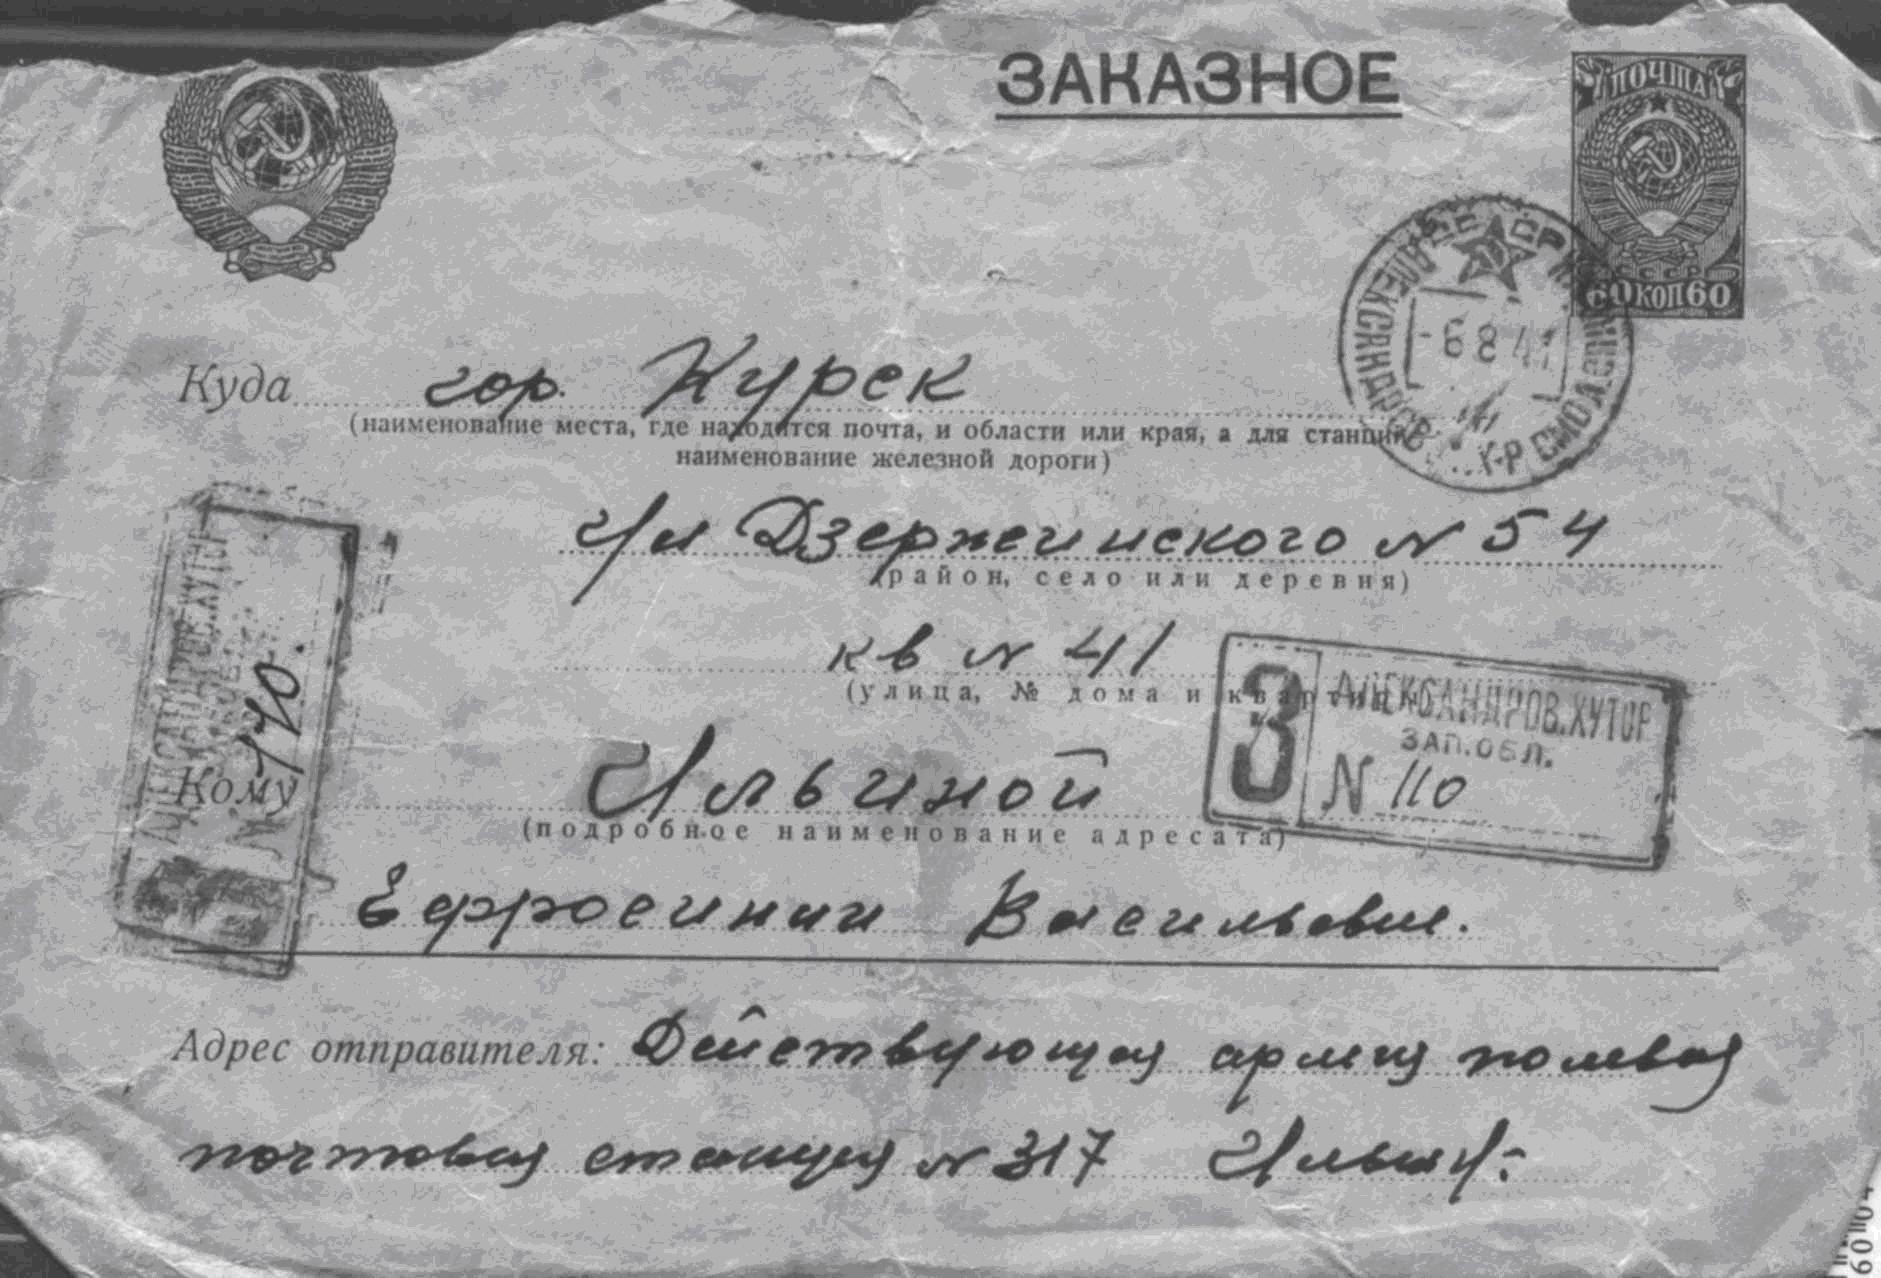 ЗАКАЗНОЕ
ПОЧТА
СССР
60 КОП 60
6 8 41
Куда гор. Курск
(наименование места, где находится почта, и области или края, а для станций
наименование железной дороги)
Ул Дзержинского N 54
(район, село или деревня)
кв N 41
(улица, № дома и квартиры)
З
АЛЕКСАНДРОВ.ХУТОР
ЗАП.ОБЛ.
N 110
АЛЕКСАНДРОВ.ХУТОР
Кому Ильиной
(подробное наименование адресата)
Ефросинии Васильевне.
Адрес отправителя: Действующая армия полевая
почтовая станция N 317 Ильин И: